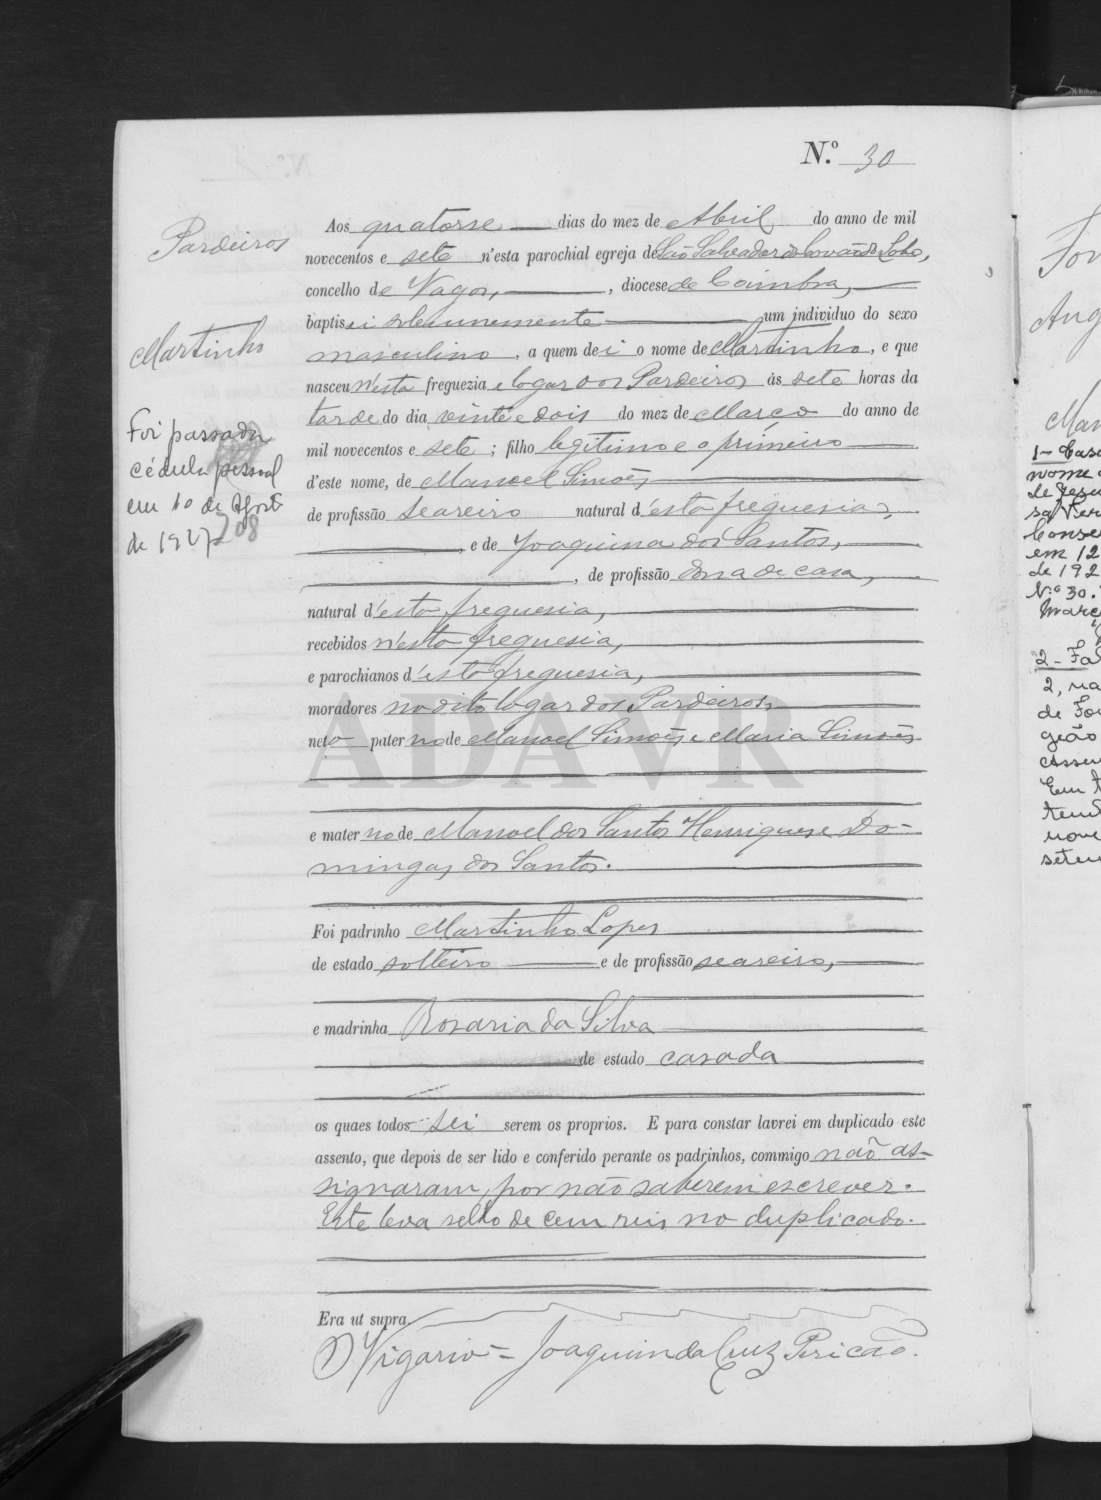 N.º 30
Pardeiros
Martinho
Foi passada
cédula pessoal
em 10 de Agosto
de 1927
208
Aos quatorse dias do mez de Abril do anno de mil
novecentos e sete n'esta parochial egreja de São Salvador do Covão do Lobo,
concelho de Vagos, , diocese de Coimbra,
baptisei solemnemente um individuo do sexo
masculino , a quem dei o nome de Martinho , e que
nasceu n'esta freguezia e logar dos Pardeiros ás sete horas da
tarde do dia vinte e dois do mez de Março do anno de
mil novecentos e sete ; filho legitimo e o primeiro
d'este nome, de Manoel Simões
de profissão seareiro natural d'esta freguesia,
, e de Joaquina dos Santos,
, de profissão dona de casa,
natural d'esta freguesia,
recebidos n'esta freguesia,
e parochianos d'esta freguesia,
moradores no dito logar dos Pardeiros,
neto paterno de Manoel Simões e Maria Simões
e materno de Manoel dos Santos Henriques e Do-
mingas dos Santos.
Foi padrinho Martinho Lopes
de estado solteiro e de profissão seareiro,
e madrinha Rosaria da Silva
de estado casada
os quaes todos sei serem os proprios. E para constar lavrei em duplicado este
assento, que depois de ser lido e conferido perante os padrinhos, commigo não as-
signaram, por não saberem escrever.
Este leva sello de cem reis no duplicado.
Era ut supra.
O Vigario = Joaquim da Cruz Pericão.
ADAVR